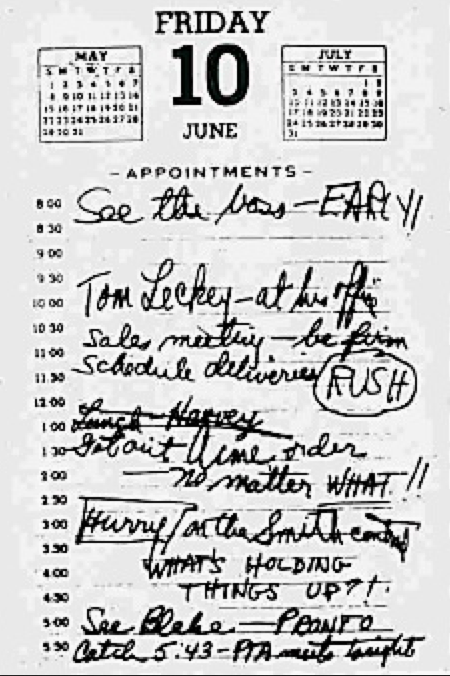 FRIDAY
10
JUNE
MAY
S M T W T F S
1 2 3 4 5 6 7
8 9 10 11 12 13 14
15 16 17 18 19 20 21
22 23 24 25 26 27 28
29 30 31
JULY
S M T W T F S
1 2
3 4 5 6 7 8 9
10 11 12 13 14 15 16
17 18 19 20 21 22 23
24 25 26 27 28 29 30
31
- APPOINTMENTS -
8 00 See the boss - EARLY!
8 30
9 00
9 30 Tom Leckey - at his office
10 00
10 30 Sales meeting - be firm
11 00 Schedule deliveries RUSH
11 30
12 00 Lunch - Harvey
1 00
1 30 Get out Acme order
2 00 no matter WHAT!!
2 30
3 00 Hurry on the Smith contract
3 30 WHAT'S HOLDING
4 00 THINGS UP?!
4 30
5 00 See Blake - PRONTO
5 30 Catch 5:43 - PTA meets tonight